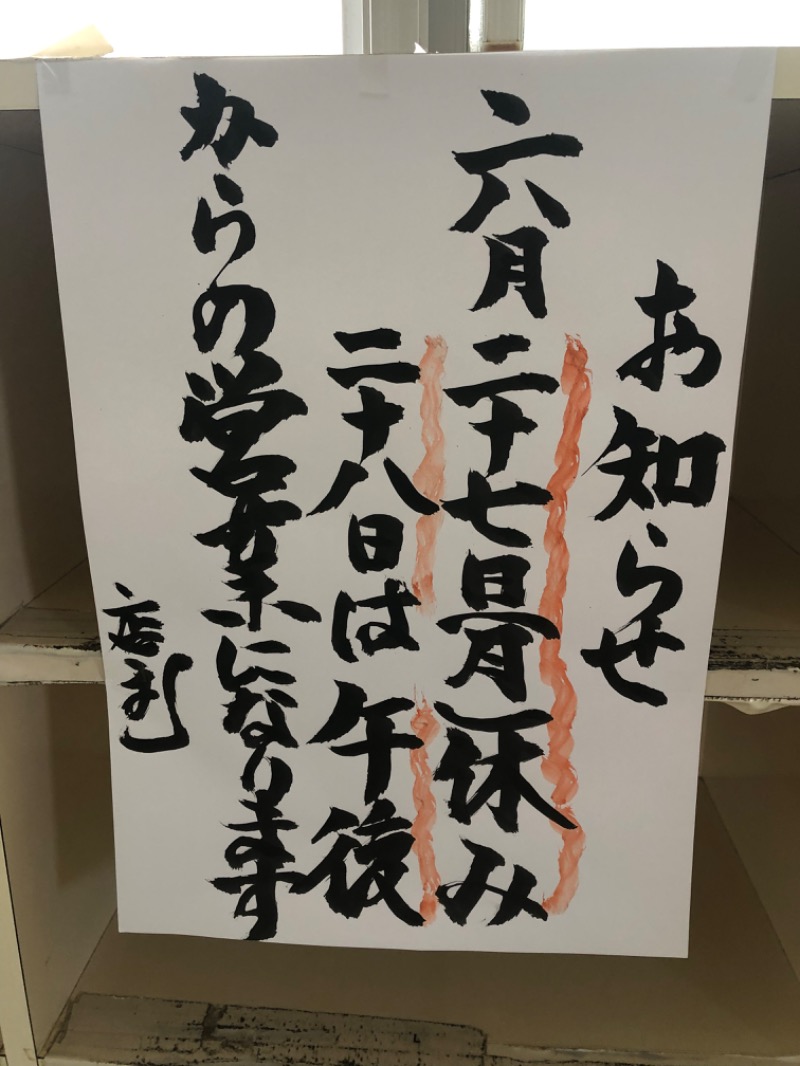 お知らせ
六月二十七日(月)休み
二十八日は午後
からの営業になります
店主